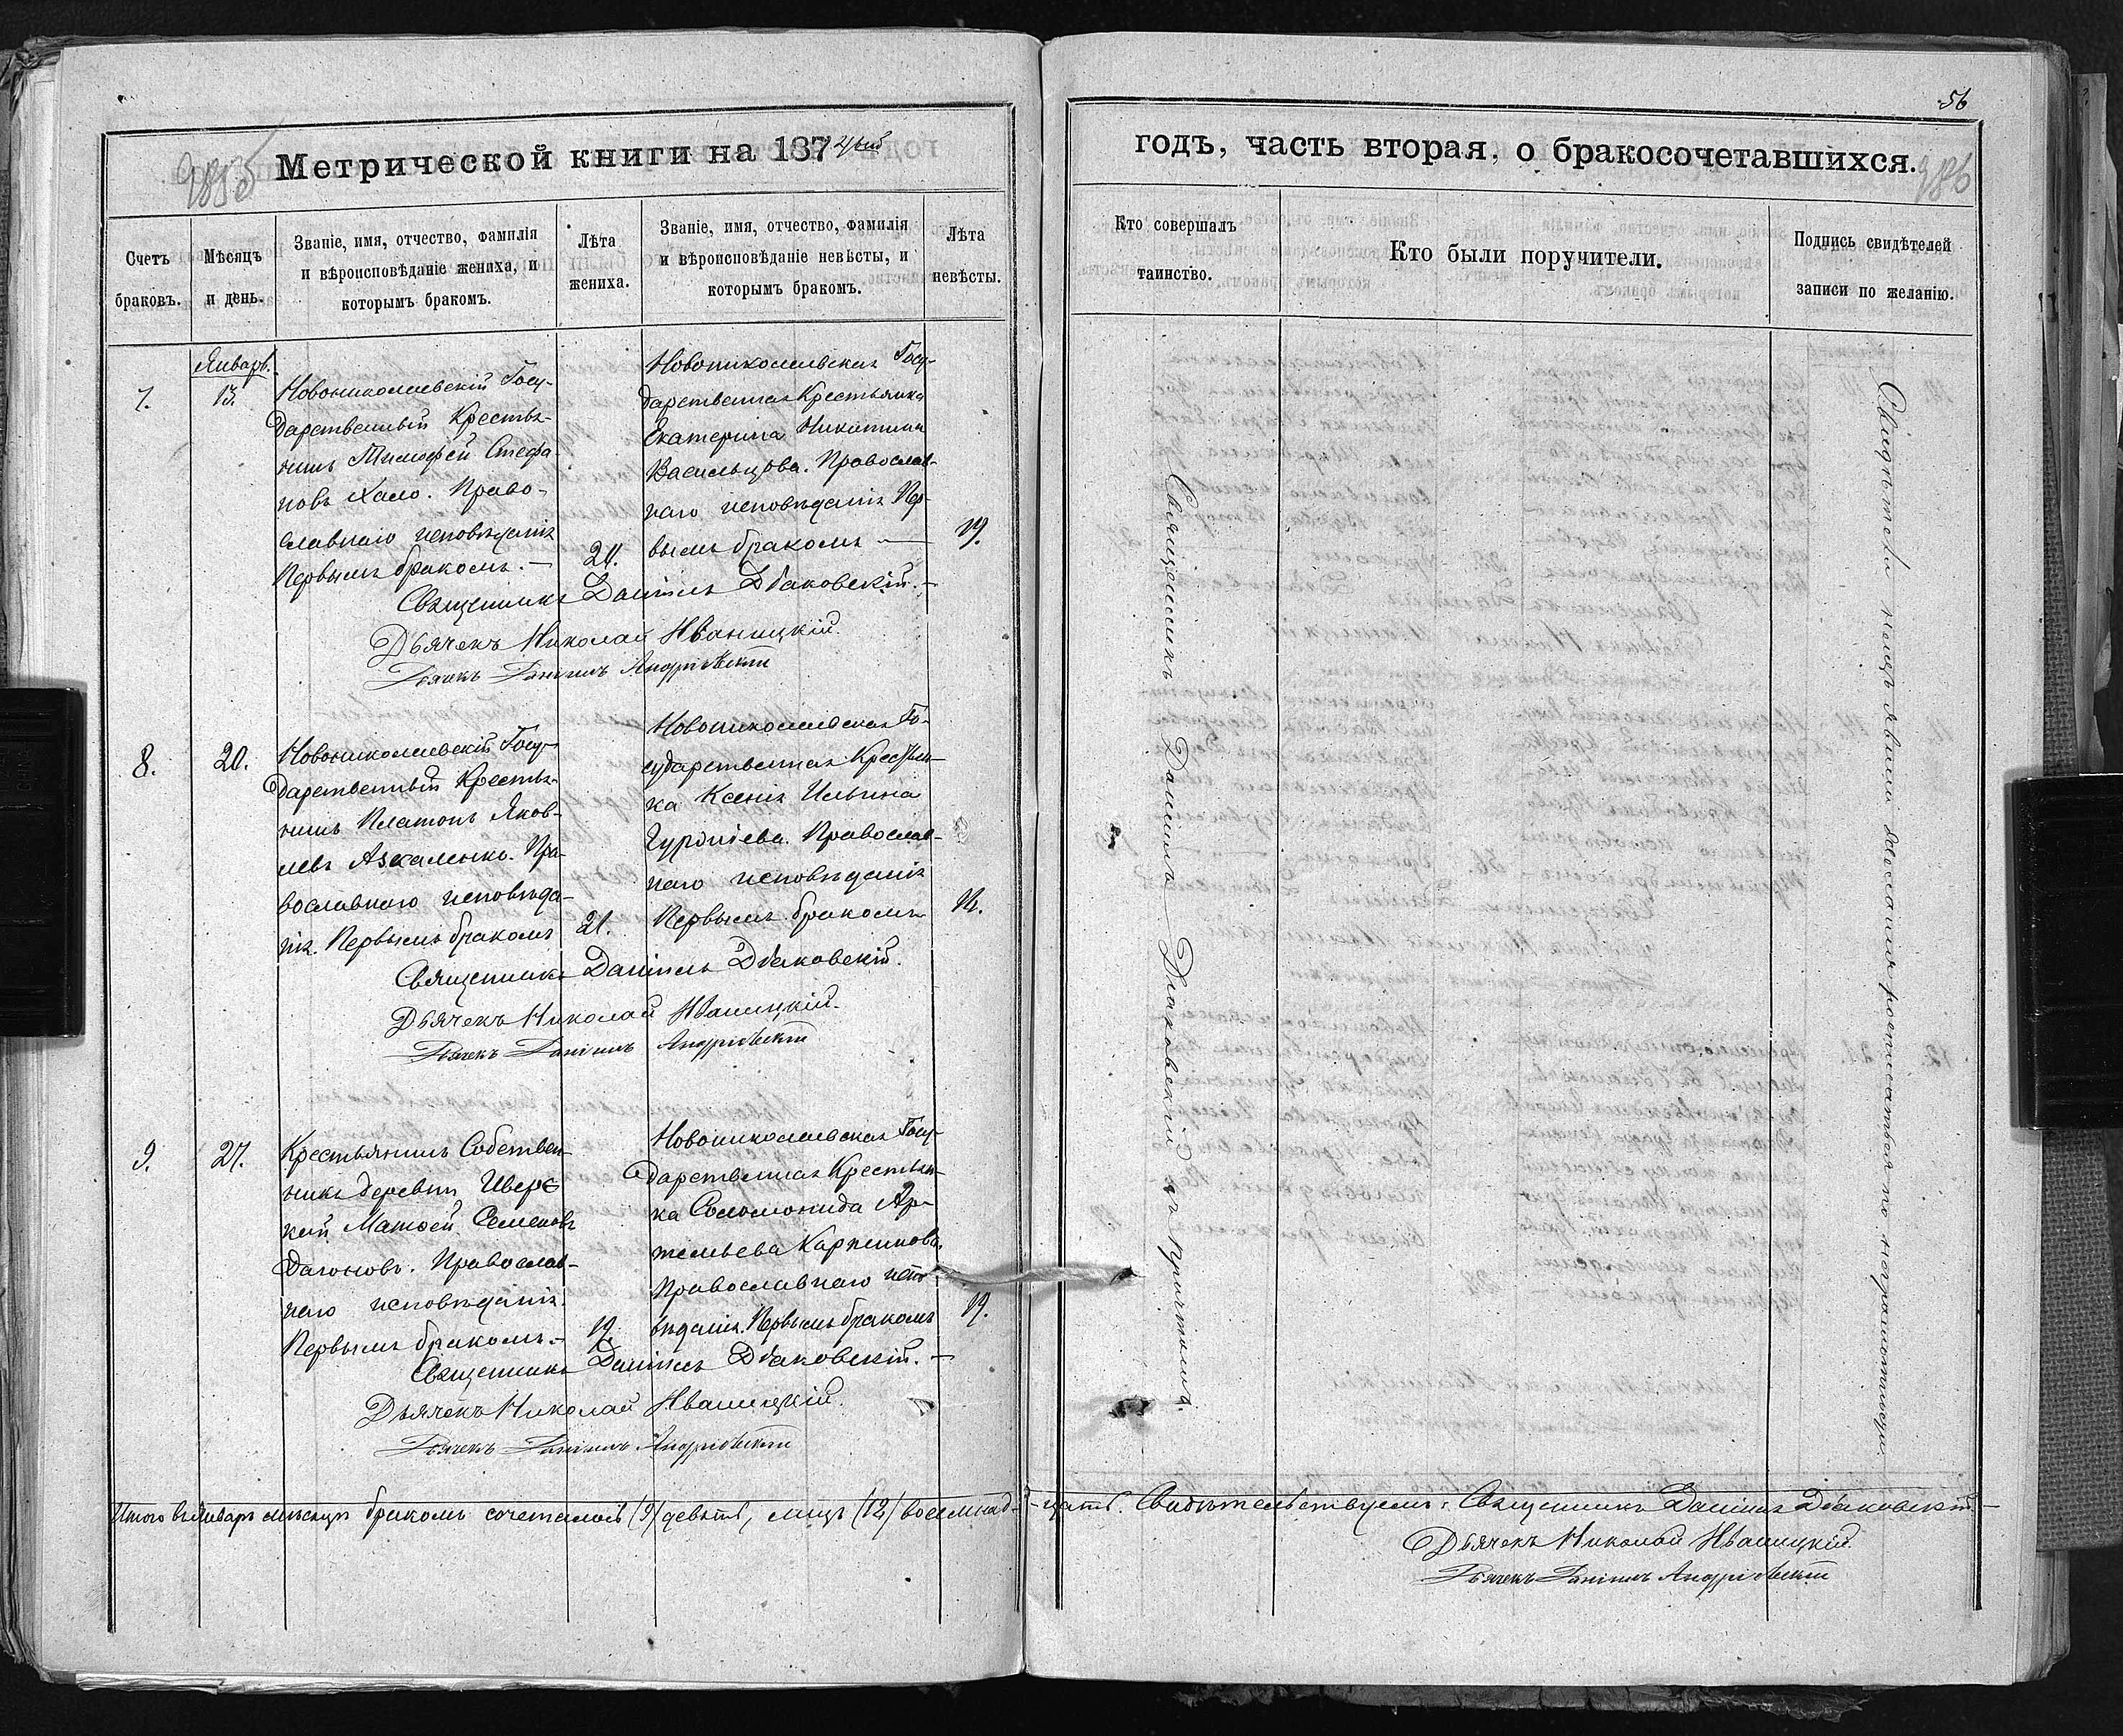 56
Метрической книги на 1874 годъ, часть вторая, о бракосочетавшихся.
985
986
Счетъ браковъ.
Мѣсяцъ и день.
Званіе, имя, отчество, фамилія и вѣроисповѣданіе жениха, и которымъ бракомъ.
Лѣта жениха.
Званіе, имя, отчество, фамилія и вѣроисповѣданіе невѣсты, и которымъ бракомъ.
Лѣта невѣсты.
Кто совершалъ таинство.
Кто были поручители.
Подпись свидѣтелей записи по желанію.
Январь.
7.
13.
Новониколаевскій Госу-
дарственный Крестья-
нинъ Тимофей Стефа
новъ Хало. Право-
славнаго исповѣданія
Первымъ бракомъ. —
20.
Новониколаевская Госу-
дарственная Крестьянка
Екатерина Никитина
Васильцова. Православ-
наго исповѣданія Пер-
вымъ бракомъ —
19.
Священникъ Даніилъ Дьаковскій. —
Дьячекъ Николай Иваницкій.
Дьячекъ Даніилъ Андріевскій
8.
20.
Новониколаевскій Госу-
дарственный Крестья-
нинъ Платонъ Яков-
левъ . Пра-
вославнаго исповѣда-
нія. Первымъ бракомъ
21.
Новониколаевская Го-
сударственная Крестьян-
ка Ксенія Ильина
. Православ-
наго исповѣданія
Первымъ бракомъ
Священникъ Даніилъ Дьаковскій.
Дьячекъ Николай Иваницкій.
Дьячекъ Даніилъ Андріевскій
9.
27.
Крестьянинъ Собствен-
никъ деревни Иверс
кой Матѳей Семеновъ
. Православ-
наго исповѣданія.
Первымъ бракомъ. —
19.
Новониколаевская Госу-
дарственная Крестьян-
ка Соломонида Ар-
темьева Карпикова.
Православнаго испо
вѣданія. Первымъ бракомъ
19.
Священникъ Даніилъ Дьаковскій. —
Дьячекъ Николай Иваницкій.
Дьячекъ Даніилъ Андріевскій
Священникъ Даніилъ Дьаковскій съ причтомъ.
Свидѣтели неизъявили желанія росписаться по неграмотности.
Итого въ Январѣ мѣсяцѣ бракомъ сочеталось (9) девять, лицъ (18) восемнад-цать. Свидѣтельствуемъ: Священникъ Даніилъ Дьаковскій —
Дьячекъ Николай Иваницкій.
Дьячекъ Даніилъ Андріевскій